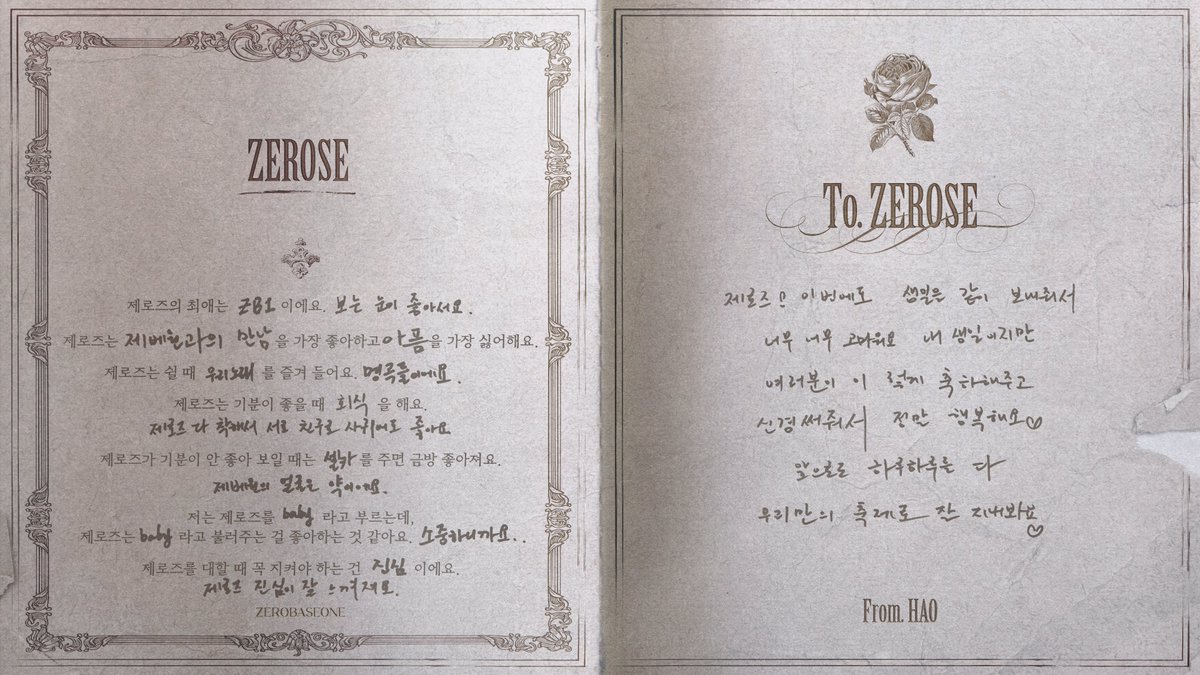 ZEROSE
제로즈의 최애는 ZB1 이에요. 보는 눈이 좋아서요.
제로즈는 제베원과의 만남 을 가장 좋아하고 아픔 을 가장 싫어해요.
제로즈는 쉴 때 우리노래 를 즐겨 들어요. 명곡들이에요.
제로즈는 기분이 좋을 때 회식 을 해요.
제로즈 다 착해서 서로 친구로 사귀어도 좋아요
제로즈가 기분이 안 좋아 보일 때는 셀카 를 주면 금방 좋아져요.
제베원의 얼굴은 약이에요.
저는 제로즈를 baby 라고 부르는데,
제로즈는 baby 라고 불러주는 걸 좋아하는 것 같아요. 소중하니까요..
제로즈를 대할 때 꼭 지켜야 하는 건 진심 이에요.
제로즈 진심이 잘 느껴져요.
ZEROBASEONE
To. ZEROSE
제로즈 이번에도 생일은 같이 보내줘서
너무 너무 고마워요 내 생일이지만
여러분이 이렇게 축하해주고
신경써줘서 전만 행복해요♡
앞으로도 하루하루는 다
우리만의 축제로 잘 지내봐요♡
From. HAO